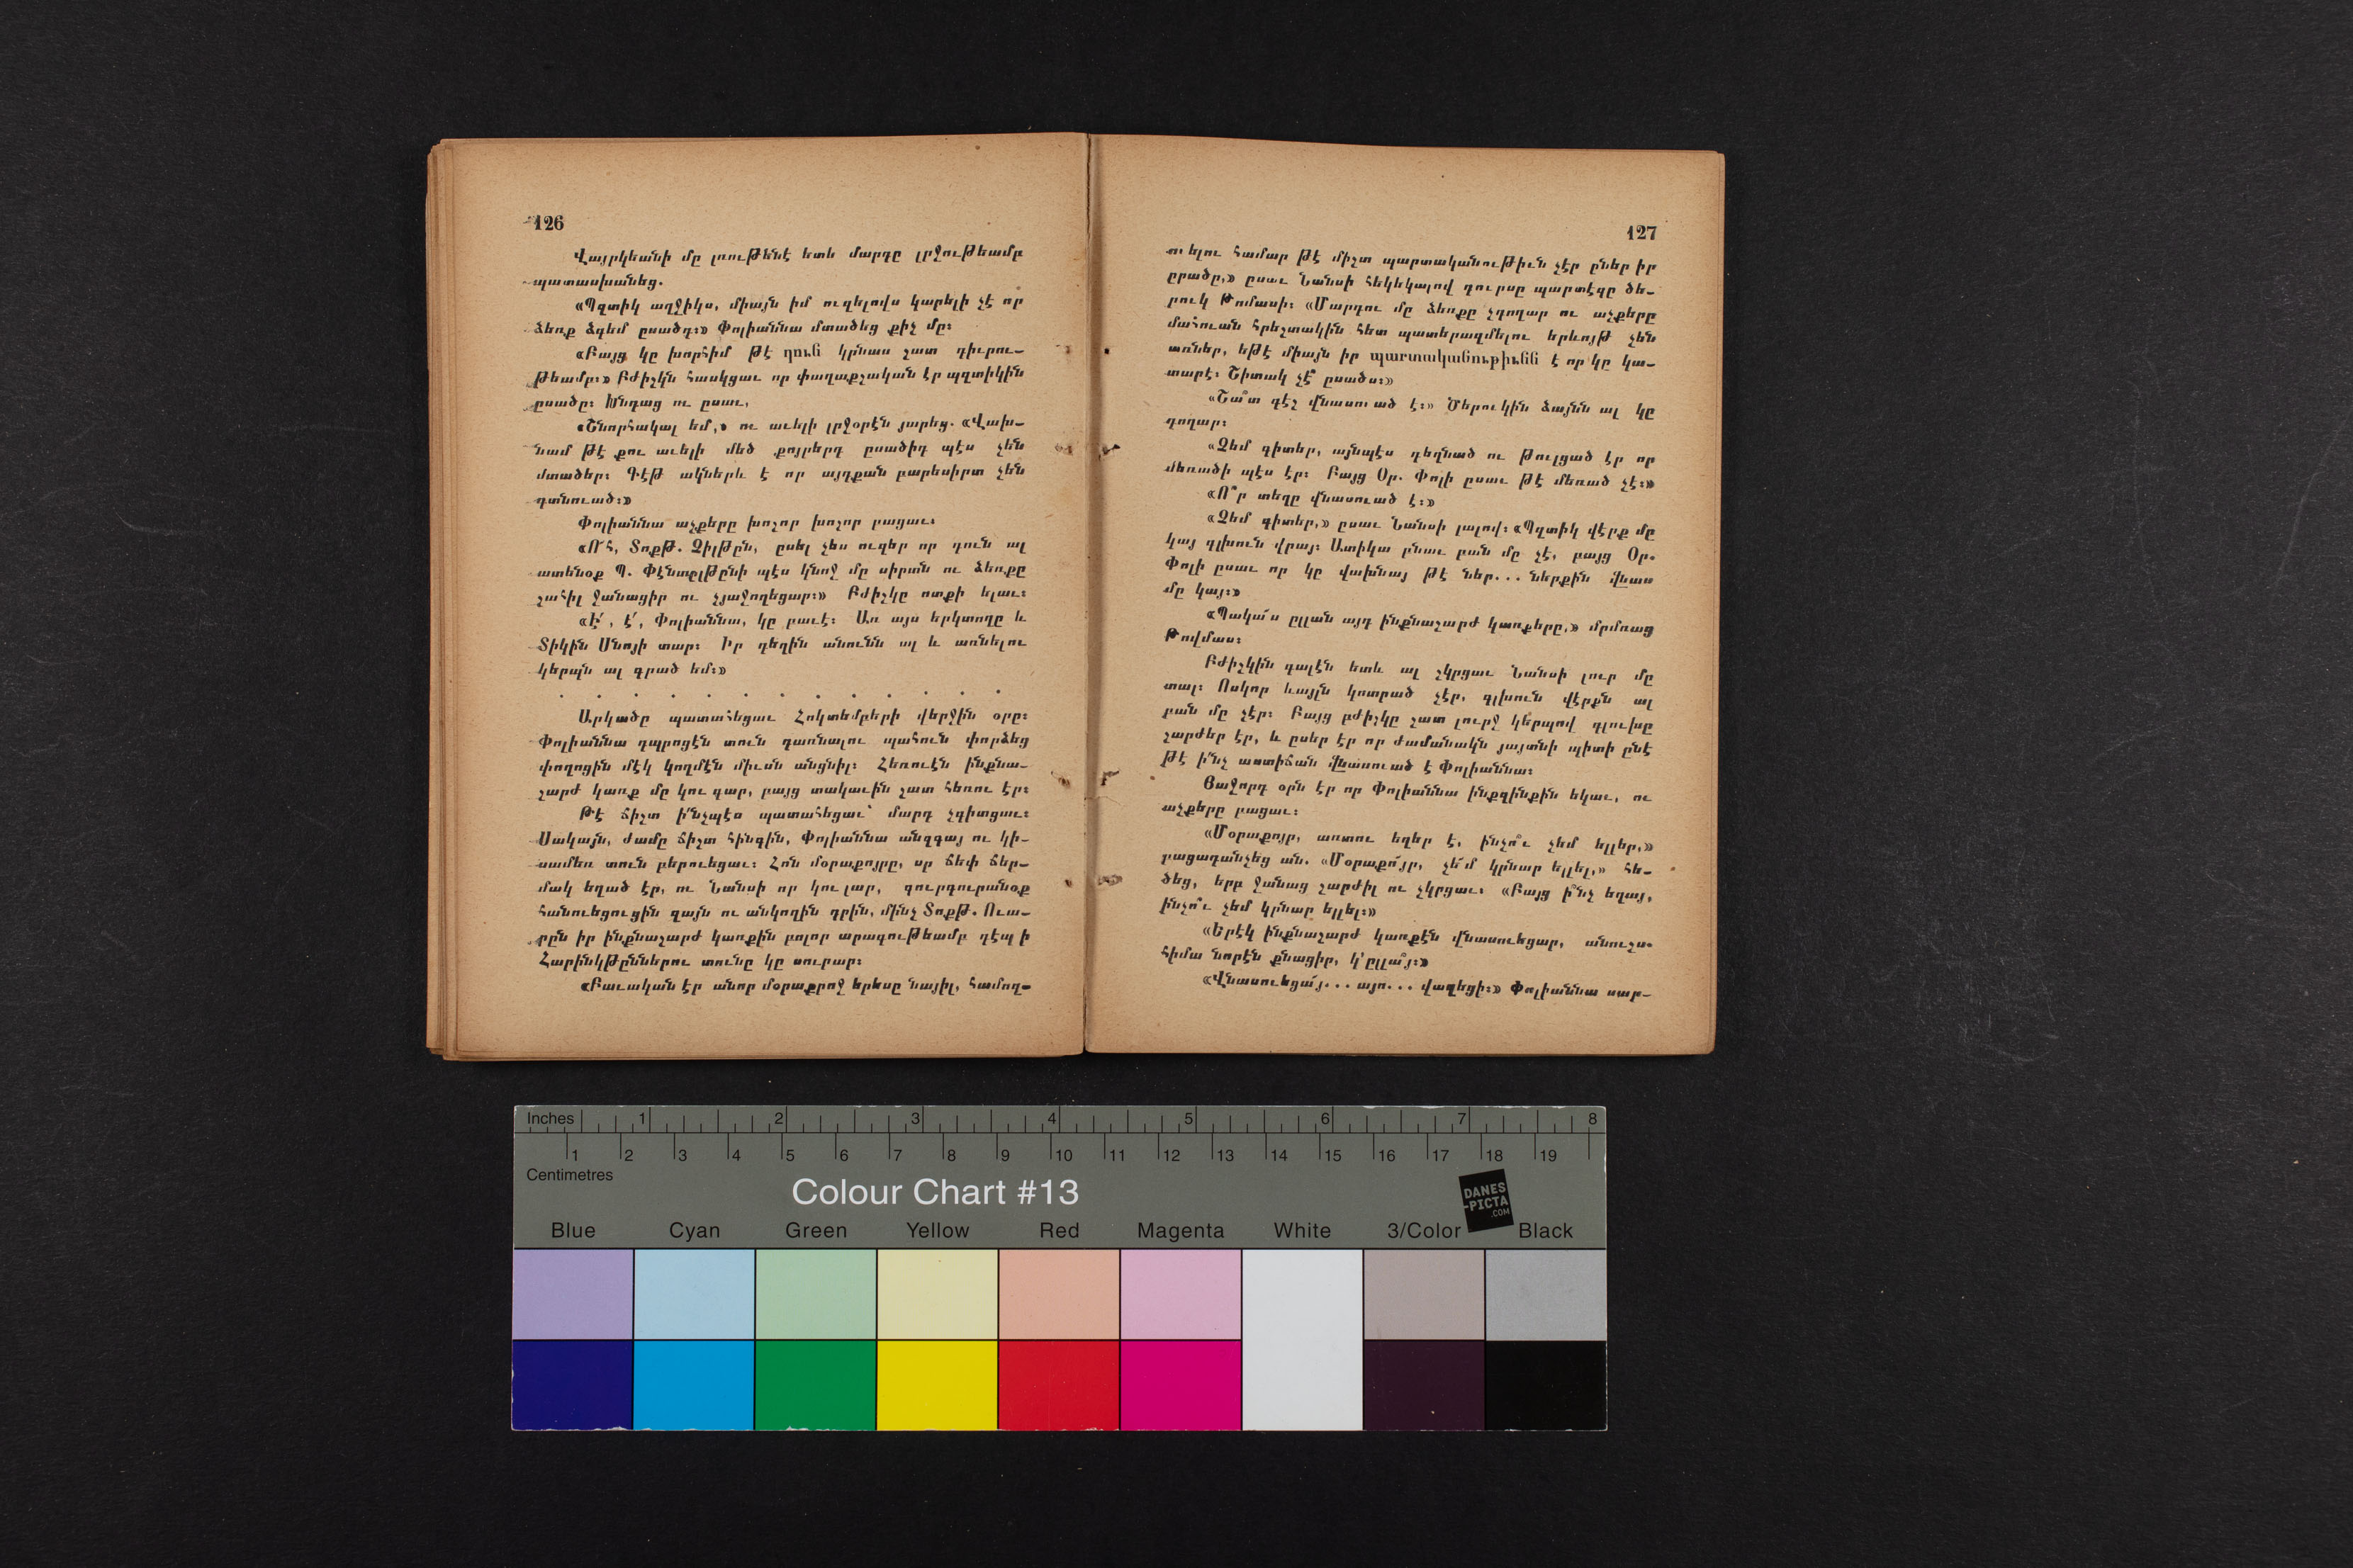 126
Վայրկեանի մը լռութենէ ետև մարդը լրջութեամբ
պատասխանեց.
«Պզտիկ աղջիկս, միայն իմ ուզելովս կարելի չէ որ
ձեռք ձգեմ ըսածդ:» Փոլիաննա մտածեց քիչ մը:
«Բայց կը խորհիմ թէ դուն կրնաս շատ դիւրու-
թեամբ:» Բժիշկն հասկցաւ որ փաղաքշական էր պզտիկին
ըսածը: Խնդաց ու ըսաւ,
«Շնորհակալ եմ,» ու աւելի լրջօրէն յարեց. «Վախ-
նամ թէ քու աւելի մեծ քոյրերդ ըսածիդ պէս չեն
մտածեր: Գէթ ակներև է որ այդքան բարեսիրտ չեն
գտնուած:»
Փոլիաննա աչքերը խոշոր խոշոր բացաւ:
«Ո՜հ, Տոքթ. Չիլթըն, ըսել չես ուզեր որ դուն ալ
ատենօք Պ. Փէնտըլթընի պէս կնոջ մը սիրտն ու ձեռքը
շահիլ ջանացիր ու չյաջողեցար:» Բժիշկը ոտքի ելաւ:
«Է՛, է՛, Փոլիաննա, կը բաւէ: Առ այս երկտողը և
Տիկին Սնոյի տար: Իր դեղին անունն ալ և առնելու
կերպն ալ գրած եմ:»
. . . . . . . . . . . . .
Արկածը պատահեցաւ Հոկտեմբերի վերջին օրը:
Փոլիաննա դպրոցէն տուն դառնալու պահուն փորձեց
փողոցին մէկ կողմէն միւսն անցնիլ: Հեռուէն ինքնա-
շարժ կառք մը կու գար, բայց տակաւին շատ հեռու էր:
Թէ ճիշտ ի՛նչպէս պատահեցաւ՝ մարդ չգիտցաւ:
Սակայն, ժամը ճիշտ հինգին, Փոլիաննա անզգայ ու կի-
սամեռ տուն բերուեցաւ: Հոն մօրաքոյրը, որ ճեփ ճեր-
մակ եղած էր, ու Նանսի որ կու լար, գուրգուրանօք
հանուեցուցին զայն ու անկողին դրին, մինչ Տոքթ. Ուա-
րըն իր ինքնաշարժ կառքին բոլոր արագութեամբ դէպ ի
Հարինկթըններու տունը կը սուրար:
«Բաւական էր անոր մօրաքրոջ երեսը նայիլ, համոզ-
127
ուելու համար թէ միշտ պարտականութիւն չէր ըներ իր
ըրածը,» ըսաւ Նանսի հեկեկալով դուրսը պարտէզը ծե-
րուկ Թոմասի: «Մարդու մը ձեռքը չդողար ու աչքերը
մահուան հրեշտակին հետ պատերազմելու երևոյթ չեն
առներ, եթէ միայն իր պարտականութիւնն է որ կը կա-
տարէ: Շիտակ չէ՞ ըսածս:»
«Շա՞տ գէշ վնասուած է:» Ծերուկին ձայնն ալ կը
դողար:
«Չեմ գիտեր, այնպէս դեղնած ու թուլցած էր որ
մեռածի պէս էր: Բայց Օր. Փոլի ըսաւ թէ մեռած չէ:»
«Ո՞ր տեղը վնասուած է:»
«Չեմ գիտեր,» ըսաւ Նանսի լալով: «Պզտիկ վէրք մը
կայ գլխուն վրայ: Ատիկա բնաւ բան մը չէ, բայց Օր.
Փոլի ըսաւ որ կը վախնայ թէ ներ... ներքին վնաս
մը կայ:»
«Պակա՛ս ըլլան այդ ինքնաշարժ կառքերը,» մրմռաց
Թովմաս:
Բժիշկին գալէն ետև ալ չկրցաւ Նանսի լուր մը
տալ: Ոսկոր ևայլն կոտրած չէր, գլխուն վէրքն ալ
բան մը չէր: Բայց բժիշկը շատ լուրջ կերպով գլուխը
շարժեր էր, և ըսեր էր որ ժամանակն յայտնի պիտի ընէ
թէ ի՛նչ աստիճան վնասուած է Փոլիաննա:
Յաջորդ օրն էր որ Փոլիաննա ինքզինքին եկաւ, ու
աչքերը բացաւ:
«Մօրաքոյր, առտու եղեր է, ինչո՞ւ չեմ ելլեր,»
բացագանչեց ան. «Մօրաքո՛յր, չե՛մ կրնար ելլել,» հե-
ծեց, երբ ջանաց շարժիլ ու չկրցաւ: «Բայց ի՞նչ եղայ,
ինչո՞ւ չեմ կրնար ելլել:»
«Երէկ ինքնաշարժ կառքէն վնասուեցար, անուշս.
հիմա նորէն քնացիր, կ՚ըլլա՞յ:»
«Վնասուեցա՛յ... այո... վազեցի:» Փոլիաննա սար-
Inches 1 2 3 4 5 6 7 8
1 2 3 4 5 6 7 8 9 10 11 12 13 14 15 16 17 18 19
Centimetres
Colour Chart #13
DANES
-PICTA
.COM
Blue Cyan Green Yellow Red Magenta White 3/Color Black